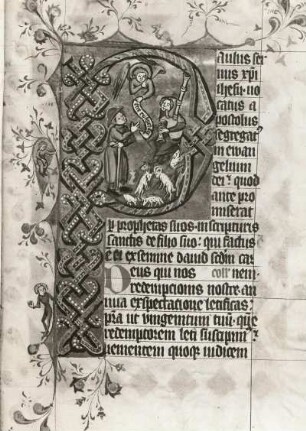 aulus ser
uus xpi
ihesu uo
catus a
postolus
segregat9
in ewan
gelium
dei quod
ante pro
miserat
p prophetas suos in scripturis
sanctis de filio suo: qui factus
e ei ex semine dauid scdm car
Deus qui nos coll' nem
redempcionis nostre an
nua exspectacione letificas:
pra ut vnigenitum tuu que
redemptorem leti suscipim9
uenientem quoq iudicem